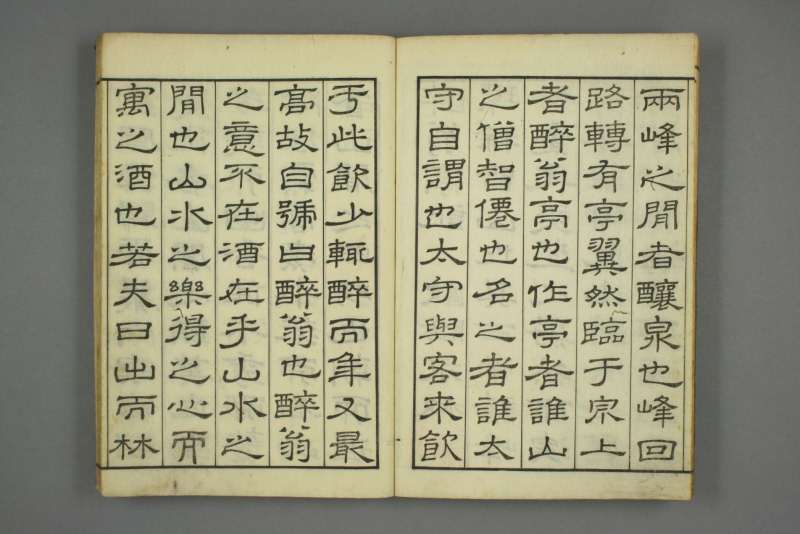 兩峰之閒者釀泉也峰回
路轉有亭翼然臨于泉上
者醉翁亭也作亭者誰山
之僧智僊也名之者誰太
守自謂也太守與客来飲
于此飲少輒醉而年又最
高故自號曰醉翁也醉翁
之意不在酒在乎山水之
閒也山水之樂得之心而
寓之酒也若夫日出而林